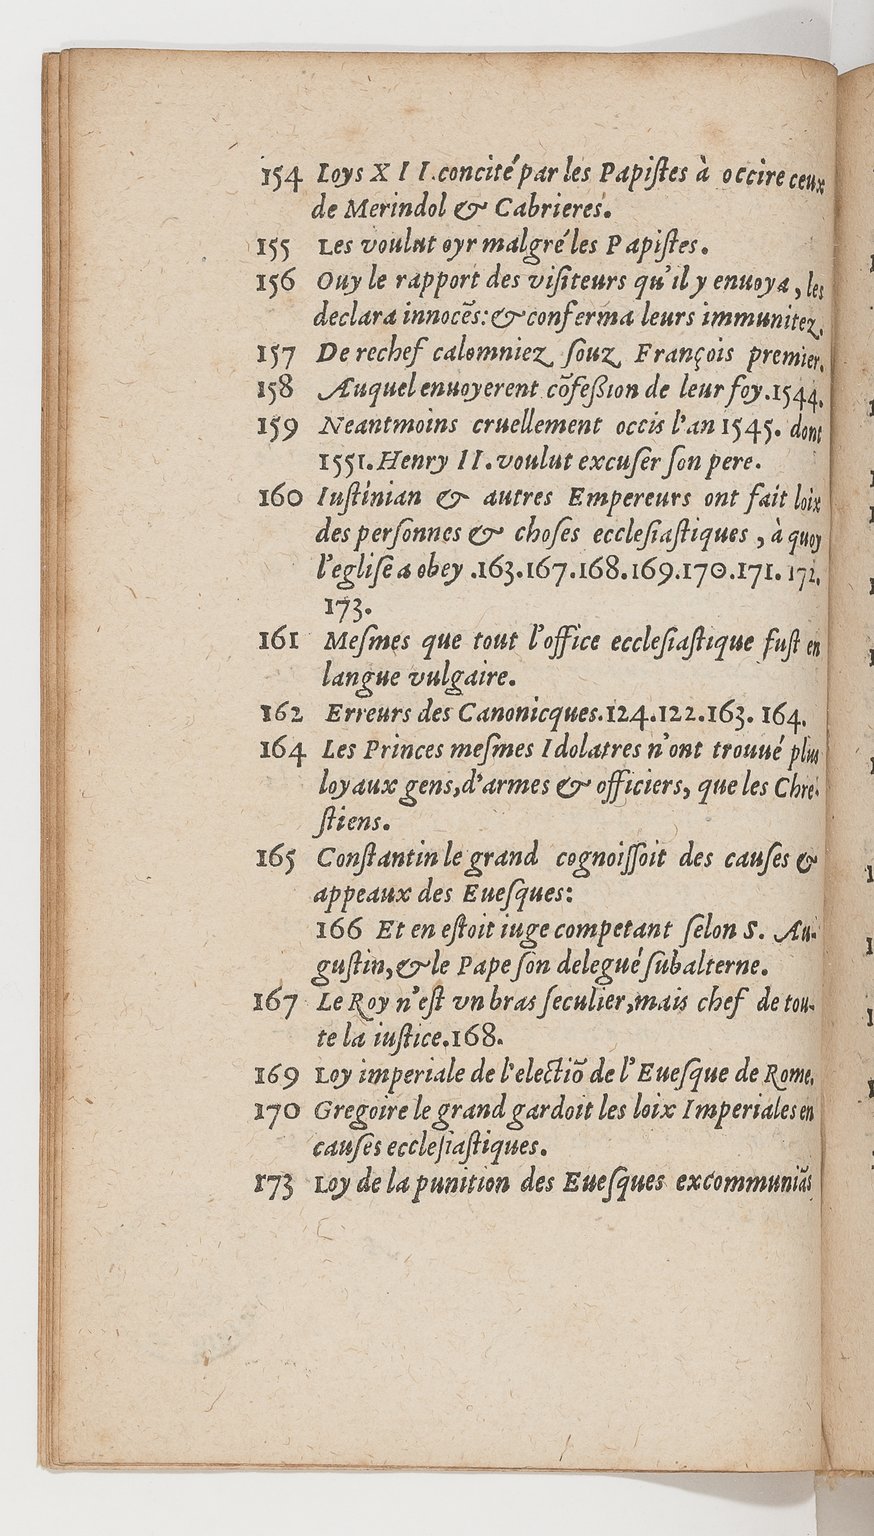 154 Loys XII. concité par les Papiſtes à occire ceux
de Merindol & Cabrieres.
155 Les voulut oyr malgré les Papiſtes.
156 Ouy le rapport des viſiteurs qu'il y enuoya, les
declara innocēs: & conferma leurs immunitez.
157 De rechef calomniez ſouz François premier.
158 Auquel enuoyerent cōfeßion de leur foy. 1544.
159 Neantmoins cruellement occis l'an 1545. dont
1551. Henry II. voulut excuſer ſon pere.
160 Iuſtinian & autres Empereurs ont fait loix
des perſonnes & choſes eccleſiaſtiques, à quoy
l'egliſe a obey. 163. 167. 168. 169. 170. 171. 172.
173.
161 Meſmes que tout l'office eccleſiaſtique fuſt en
langue vulgaire.
162 Erreurs des Canonicques. 124. 122. 163. 164.
164 Les Princes meſmes Idolatres n'ont trouué plus
loyaux gens, d'armes & officiers, que les Chre-
ſtiens.
165 Conſtantin le grand cognoiſſoit des cauſes &
appeaux des Eueſques:
166 Et en eſtoit iuge competant ſelon S. Au-
guſtin, & le Pape ſon delegué ſubalterne.
167 Le Roy n'eſt vn bras ſeculier, mais chef de tou-
te la iuſtice. 168.
169 Loy imperiale de l'electiō de l'Eueſque de Rome.
170 Gregoire le grand gardoit les loix Imperiales en
cauſes eccleſiaſtiques.
173 Loy de la punition des Eueſques excommuniās